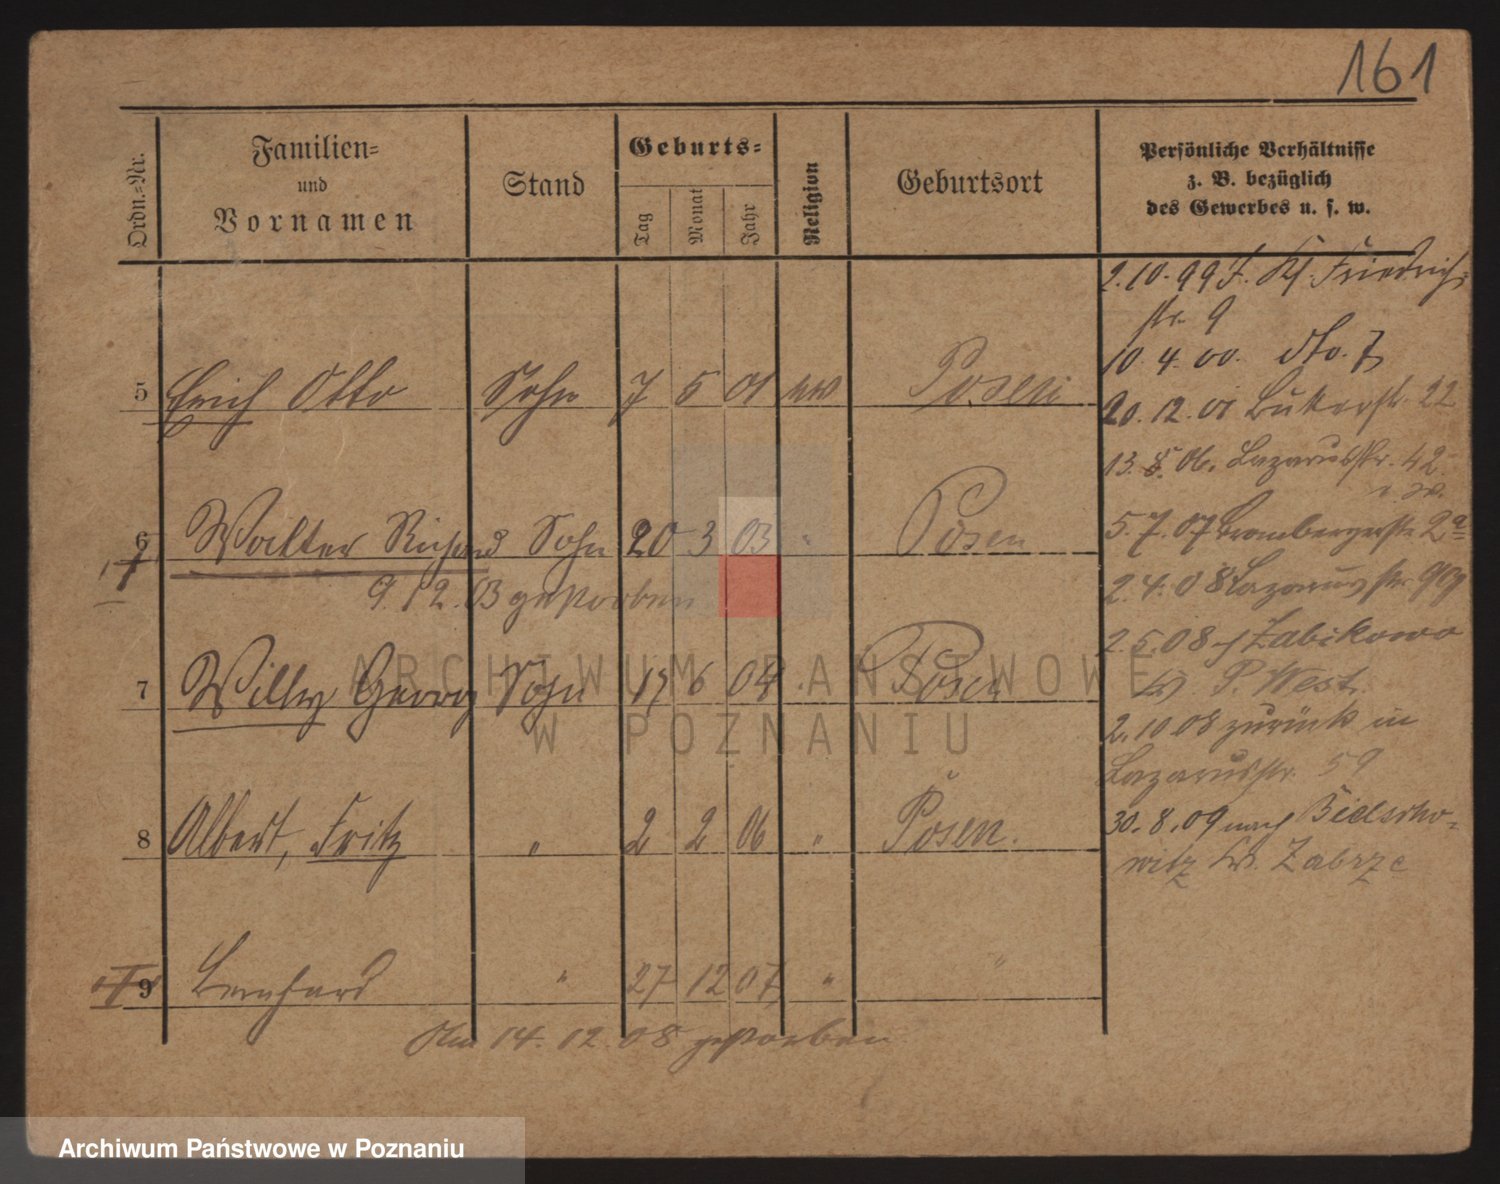 161
Ordn.-Nr.
Familien-
und
Vornamen
Stand
Geburts-
Tag
Monat
Jahr
Religion
Geburtsort
Persönliche Verhältnisse
z. B. bezüglich
des Gewerbes u. s. w.
5 Erich Otto Sohn 7 5 01 Posen
6 Walter Richard Sohn 20 3 03 " Posen
9.12.03 gestorben
7 Willy Georg Sohn 17 6 04 Posen
8 Albert, Fritz " 2 2 06 " Posen.
9 Bernhard " 27 12 07 " "
Am 14.12.08 gestorben
2.10.99 Kl. Friedrich-
str. 9
10.4.00. dto. 7
20.12.01 Bukerstr. 22
13. 06. Lazarusstr. 42
5.7.07 Brombergerstr. 2a
2.4.08 Lazarusstr.
2.5.08 Zabikowo
P. West.
2.10.08 zurück in
Lazarusstr. 59
30.8.09 nach Bielscho-
witz Kr. Zabrze
ARCHIWUM PAŃSTWOWE
W POZNANIU
Archiwum Państwowe w Poznaniu